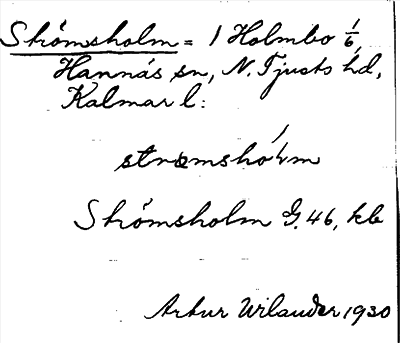 Strömsholm = 1 Holmbo 1/6,
Hannäs sn, N. Tjusts hd,
Kalmar l:
strœmshólm
Strömsholm G. 46, kb
Artur Wilander 1930